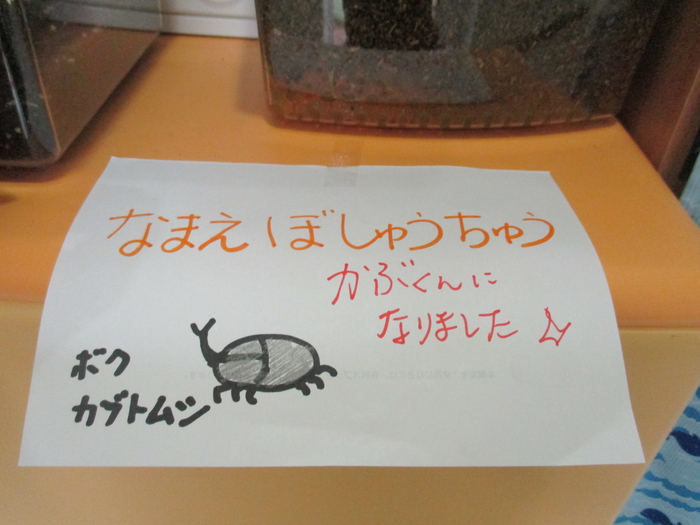 なまえ ぼしゅうちゅう
かぶくんに
なりました
ボク
カブトムシ